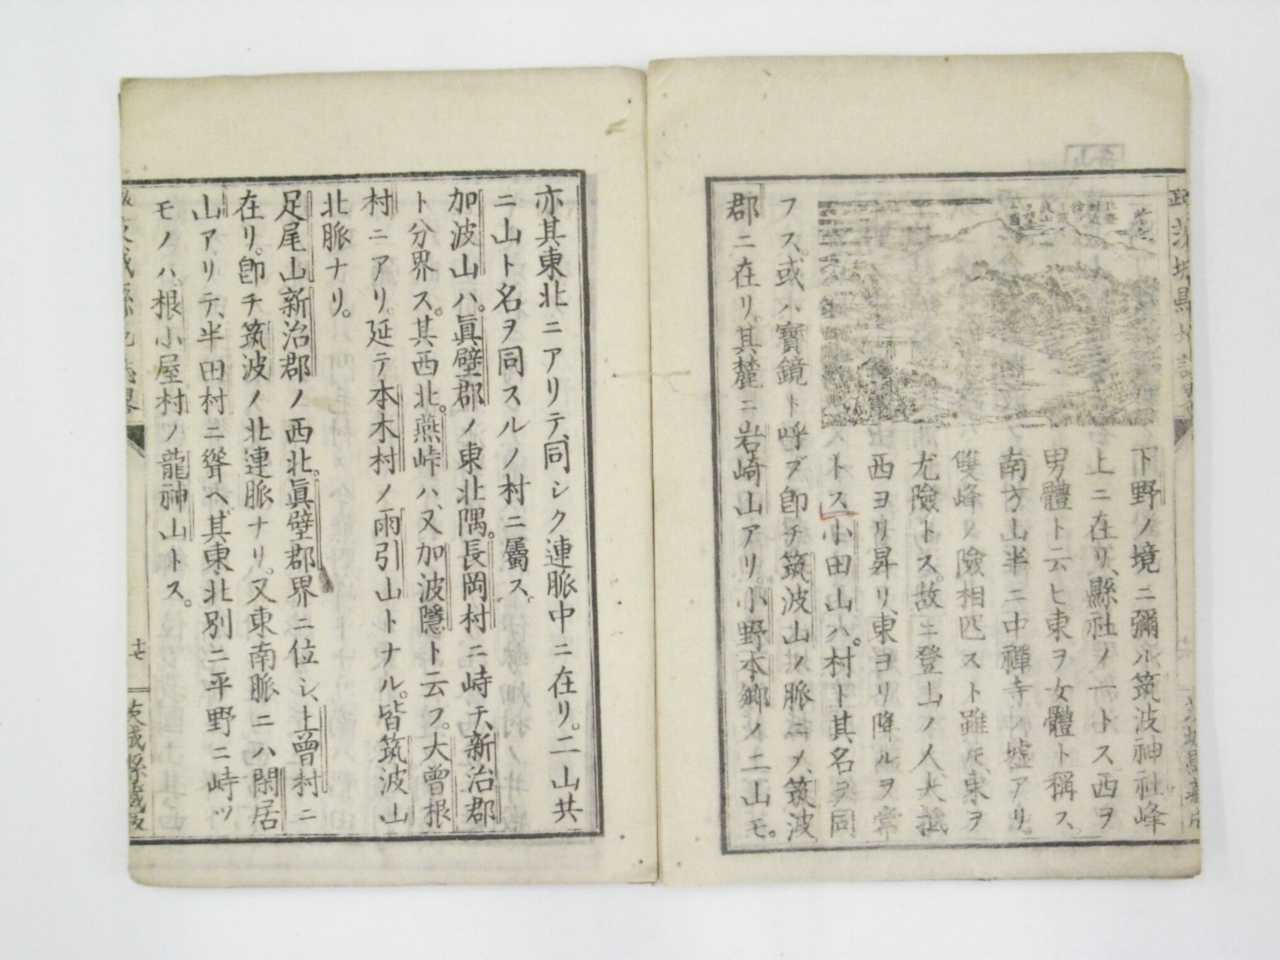 下野ノ境ニ彌ル筑波神社峰
上ニ在リ、縣社ノ一トス西ヲ
男體ト云ヒ東ヲ女體ト稱ス
南方山半ニ中禪寺ノ墟アリ
雙峰ノ險相匹スト雖𪜈東ヲ
尤險トス。故ニ登山ノ人大抵
西ヨリ昇リ、東ヨリ降ルヲ常
トス小田山ハ。村ト其名ヲ同
フス。或ハ寶鏡ト呼ブ卽チ筑波山ノ脈ニメ、筑波
郡ニ在リ。其麓ニ岩崎山アリ。小野本鄉ノ二山モ。
亦其東北ニアリテ、同シク連脈中ニ在リ。二山共
ニ山ト名ヲ同スルノ村ニ屬ス。
加波山ハ。眞壁郡ノ東北隅。長岡村ニ峙チ、新治郡
ト分界ス。其西北。燕峠ハ、又加波隱ト云フ。大曾根
村ニアリ。延テ本木村ノ雨引山トナル。皆筑波山
北脈ナリ。
足尾山新治郡ノ西北。眞壁郡界ニ位シ、上曾村ニ
在リ。卽チ筑波ノ北連脈ナリ。又東南脈ニハ閑居
山アリテ、半田村ニ聳ヘ、其東北別ニ平野ニ峙ツ
モノハ。根小屋村ノ龍神山トス。
十七
茨城縣藏版